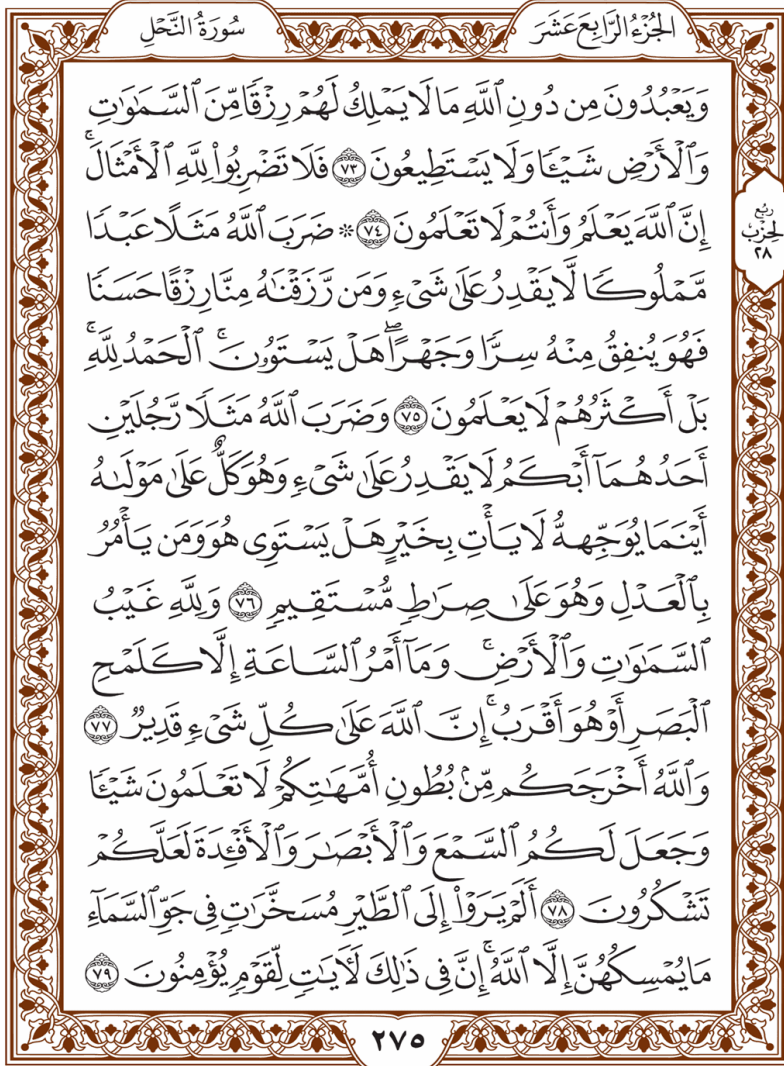 الجُزْءُ الرَّابِعَ عَشَرَ
سُورَةُ النَّحْلِ
وَيَعْبُدُونَ مِن دُونِ ٱللَّهِ مَا لَا يَمْلِكُ لَهُمْ رِزْقًا مِّنَ ٱلسَّمَٰوَٰتِ
وَٱلْأَرْضِ شَيْـًٔا وَلَا يَسْتَطِيعُونَ ٧٣ فَلَا تَضْرِبُوا۟ لِلَّهِ ٱلْأَمْثَالَ ۚ
إِنَّ ٱللَّهَ يَعْلَمُ وَأَنتُمْ لَا تَعْلَمُونَ ٧٤ * ضَرَبَ ٱللَّهُ مَثَلًا عَبْدًا
مَّمْلُوكًا لَّا يَقْدِرُ عَلَىٰ شَىْءٍ وَمَن رَّزَقْنَٰهُ مِنَّا رِزْقًا حَسَنًا
فَهُوَ يُنفِقُ مِنْهُ سِرًّا وَجَهْرًا ۖ هَلْ يَسْتَوُۥنَ ۚ ٱلْحَمْدُ لِلَّهِ ۚ
بَلْ أَكْثَرُهُمْ لَا يَعْلَمُونَ ٧٥ وَضَرَبَ ٱللَّهُ مَثَلًا رَّجُلَيْنِ
أَحَدُهُمَآ أَبْكَمُ لَا يَقْدِرُ عَلَىٰ شَىْءٍ وَهُوَ كَلٌّ عَلَىٰ مَوْلَىٰهُ
أَيْنَمَا يُوَجِّههُّ لَا يَأْتِ بِخَيْرٍ هَلْ يَسْتَوِى هُوَ وَمَن يَأْمُرُ
بِٱلْعَدْلِ وَهُوَ عَلَىٰ صِرَٰطٍ مُّسْتَقِيمٍ ٧٦ وَلِلَّهِ غَيْبُ
ٱلسَّمَٰوَٰتِ وَٱلْأَرْضِ ۚ وَمَآ أَمْرُ ٱلسَّاعَةِ إِلَّا كَلَمْحِ
ٱلْبَصَرِ أَوْ هُوَ أَقْرَبُ ۚ إِنَّ ٱللَّهَ عَلَىٰ كُلِّ شَىْءٍ قَدِيرٌ ٧٧
وَٱللَّهُ أَخْرَجَكُم مِّنۢ بُطُونِ أُمَّهَٰتِكُمْ لَا تَعْلَمُونَ شَيْـًٔا
وَجَعَلَ لَكُمُ ٱلسَّمْعَ وَٱلْأَبْصَٰرَ وَٱلْأَفْـِٔدَةَ لَعَلَّكُمْ
تَشْكُرُونَ ٧٨ أَلَمْ يَرَوْا۟ إِلَى ٱلطَّيْرِ مُسَخَّرَٰتٍ فِى جَوِّ ٱلسَّمَآءِ
مَا يُمْسِكُهُنَّ إِلَّا ٱللَّهُ ۚ إِنَّ فِى ذَٰلِكَ لَءَايَٰتٍ لِّقَوْمٍ يُؤْمِنُونَ ٧٩
رُبْع
الحِزْب
٢٨
٢٧٥